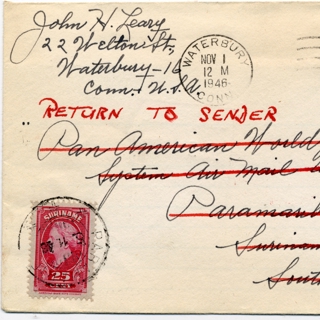 John H. Leary
22 Welton St.,
Waterbury-16
Conn., U.S.A.
WATERBURY
NOV 1
12 M
1946
CONN.
RETURN TO SENDER
Pan American World
System Air Mail
Paramari
Surinam
South
SURINAME
25